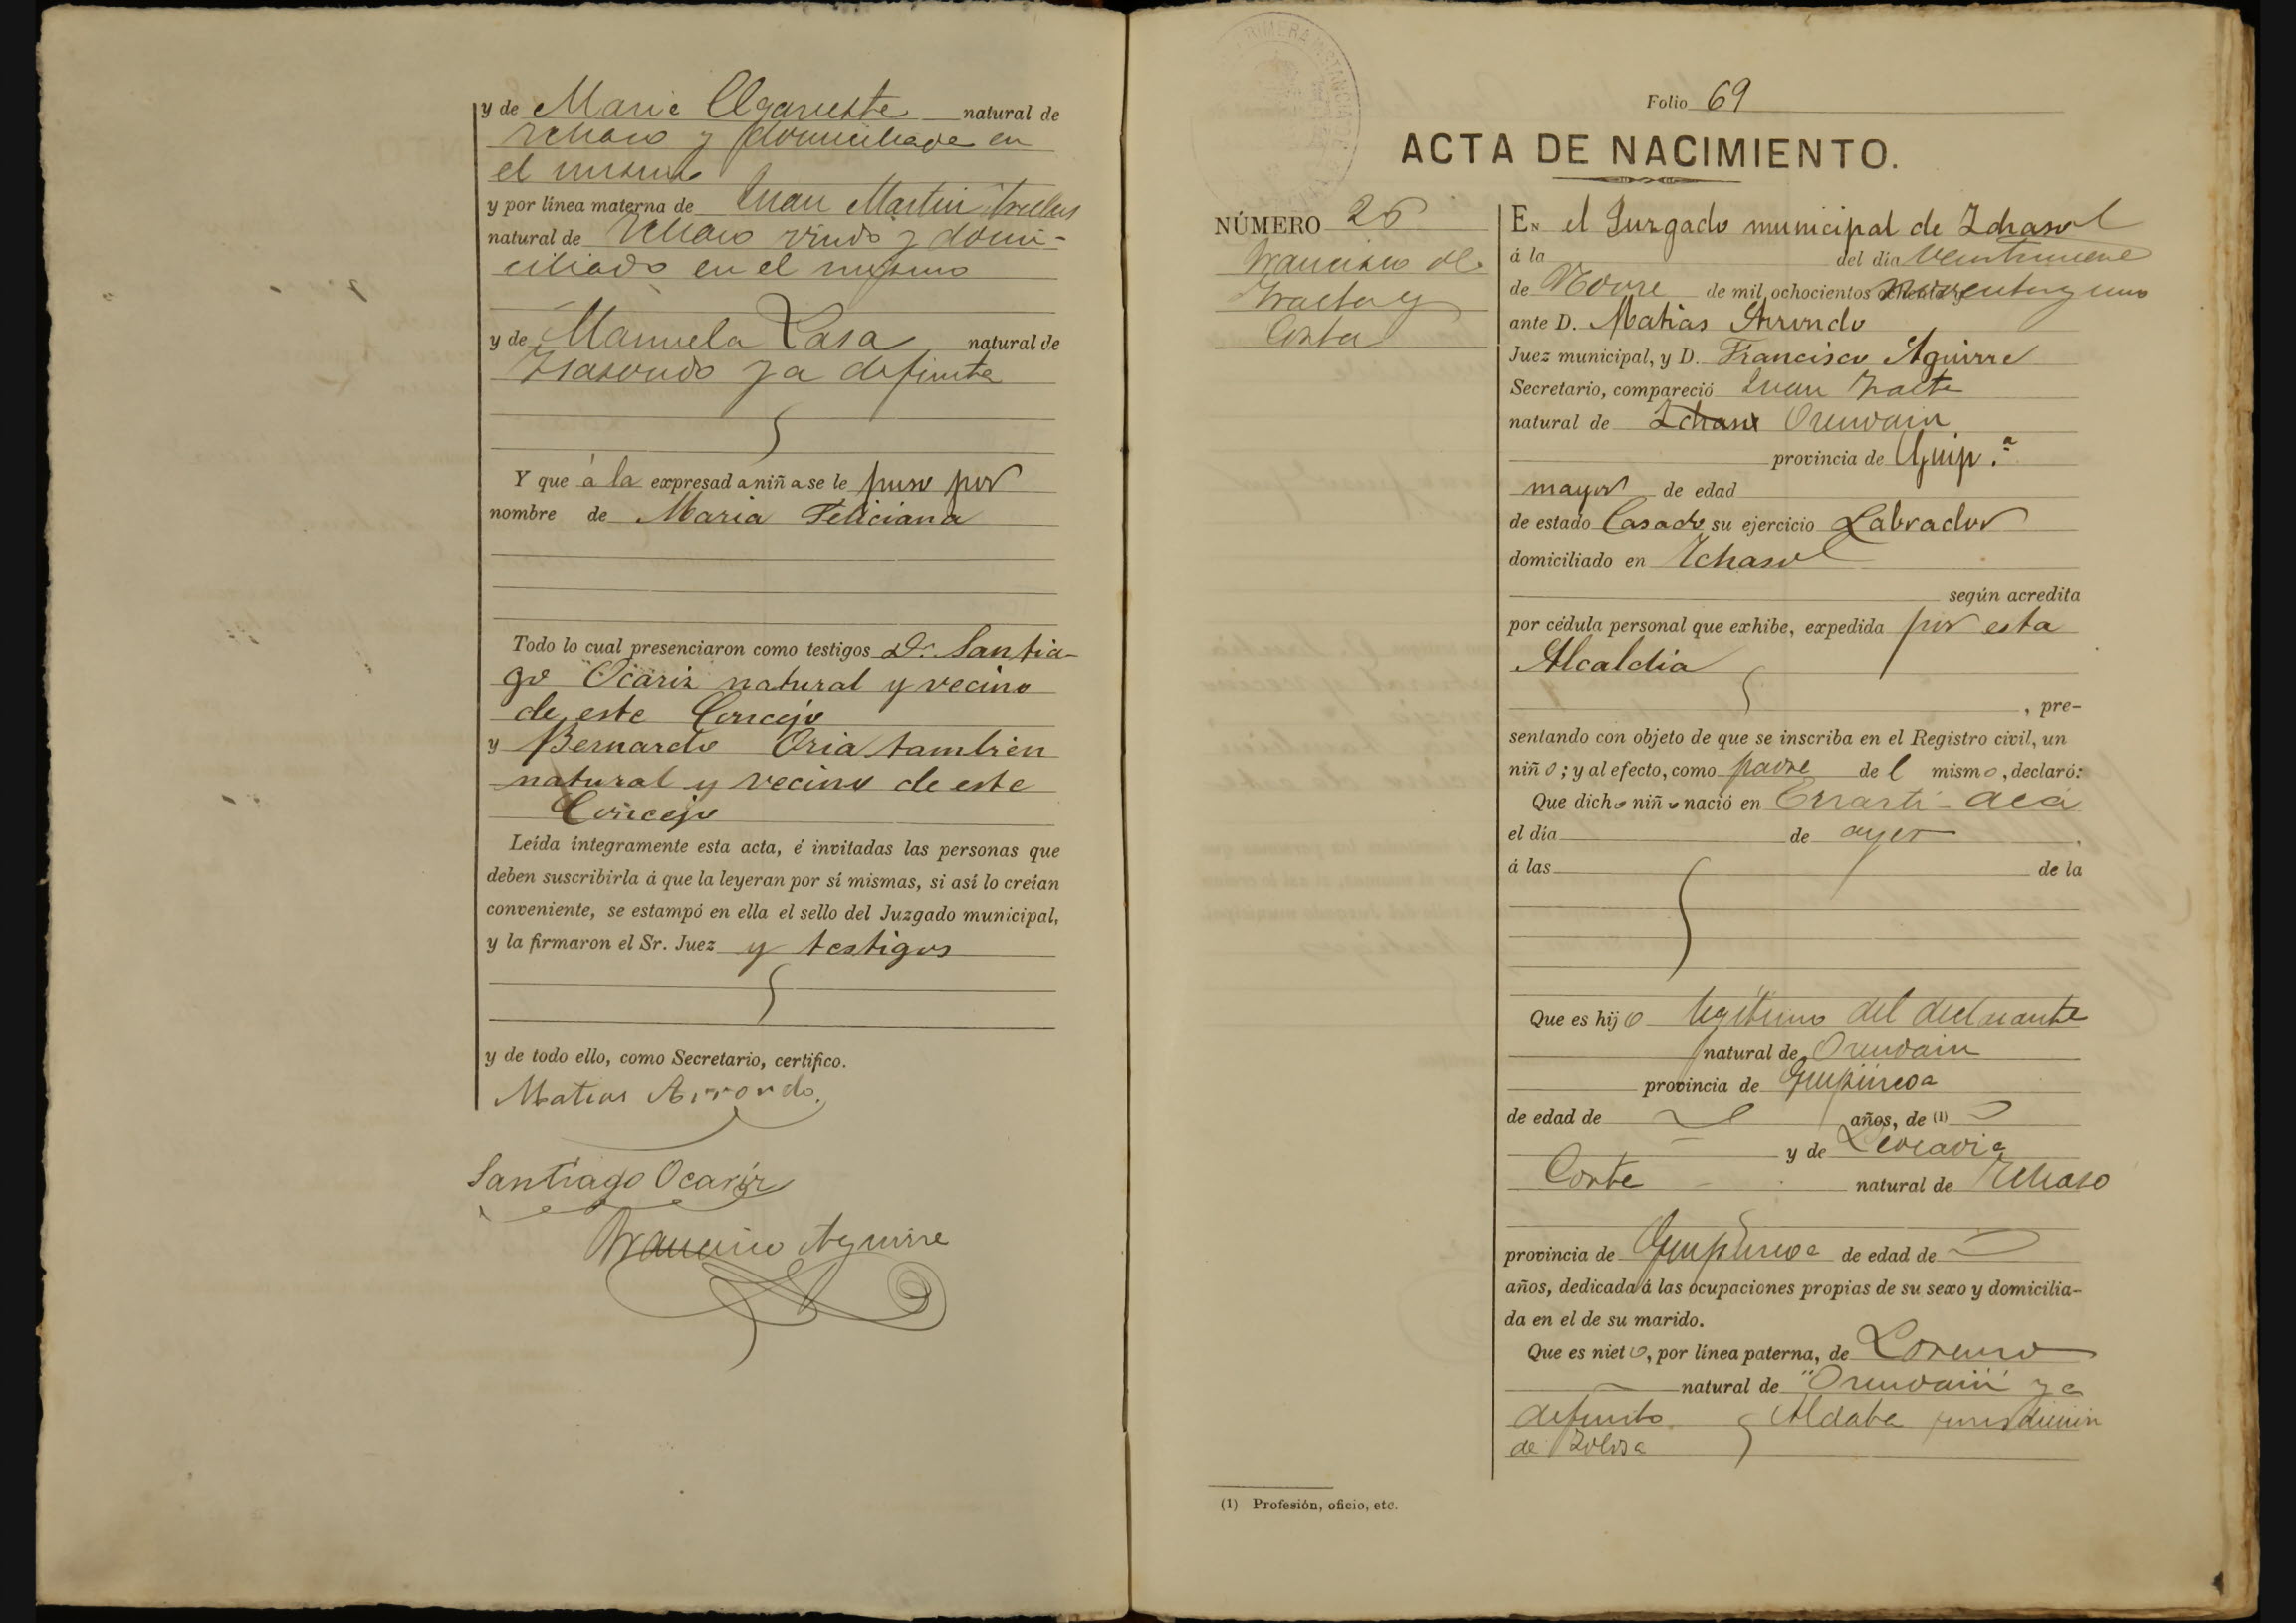 y de Maria natural de
Ichaso y domiciliada en
el mismo
y por línea materna de Juan Martin
natural de Ichaso viudo y domi-
ciliado en el mismo
y de Manuela Lasa natural de
ya difunta
Y que á la expresad a niñ a se le puso por
nombre de Maria Feliciana
Todo lo cual presenciaron como testigos Dn. Santia-
go Ocariz natural y vecino
de este Concejo
y Bernardo Oria tambien
natural y vecino de este
Concejo
Leída íntegramente esta acta, é invitadas las personas que
deben suscribirla á que la leyeran por sí mismas, si así lo creían
conveniente, se estampó en ella el sello del Juzgado municipal,
y la firmaron el Sr. Juez y testigos
y de todo ello, como Secretario, certifico.
Matias Arrondo.
Santiago Ocariz
Francisco Aguirre
Folio 69
ACTA DE NACIMIENTO.
NÚMERO 26
Francisco de
y
En el Juzgado municipal de Ichaso
á la del día Veintinueve
de de mil ochocientos noventa y uno
ante D. Matias Arrondo
Juez municipal, y D. Francisco Aguirre
Secretario, compareció Juan
natural de Ichaso Orendain
provincia de Guip.ª
mayor de edad
de estado Casado su ejercicio Labrador
domiciliado en Ichaso
según acredita
por cédula personal que exhibe, expedida por esta
Alcaldia
, pre-
sentando con objeto de que se inscriba en el Registro civil, un
niñ o; y al efecto, como padre de l mism o, declaró:
Que dich o niñ o nació en Errasti
el día de ayer
á las de la
Que es hij o legítimo del declarante
natural de Orendain
provincia de Guipúzcoa
de edad de años, de (1)
y de Leocadia
natural de Ichaso
provincia de Guipúzcoa de edad de
años, dedicada á las ocupaciones propias de su sexo y domicilia-
da en el de su marido.
Que es niet o, por línea paterna, de Lorenzo
natural de Orendain ya
difunto Aldaba jurisdiccion
de Tolosa
(1) Profesión, oficio, etc.